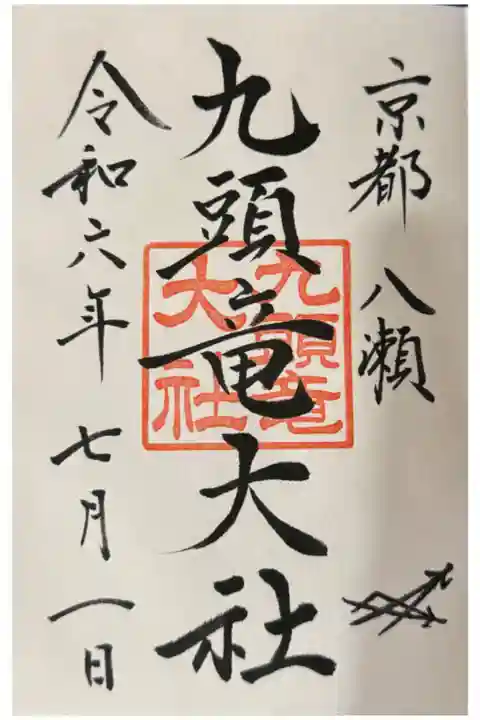 京都 八瀬
九頭竜大社
九頭竜
大社
令和六年 七月一日